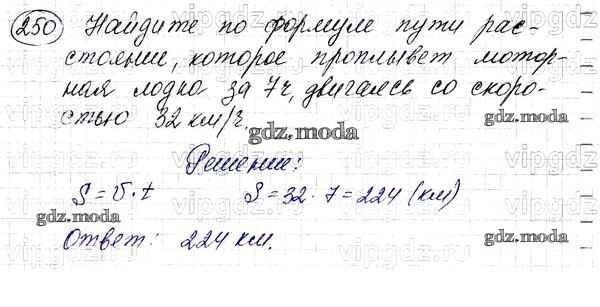 250 Найдите по формуле пути рас-
стояние, которое проплывет мотор-
ная лодка за 7ч, двигаясь со скоро-
стью 32 км/ч.
gdz.moda
gdz.moda
Решение:
S = V · t S = 32 · 7 = 224 (км)
gdz.moda
Ответ: 224 км.
gdz.moda
vipgdz
vipgdz.ru